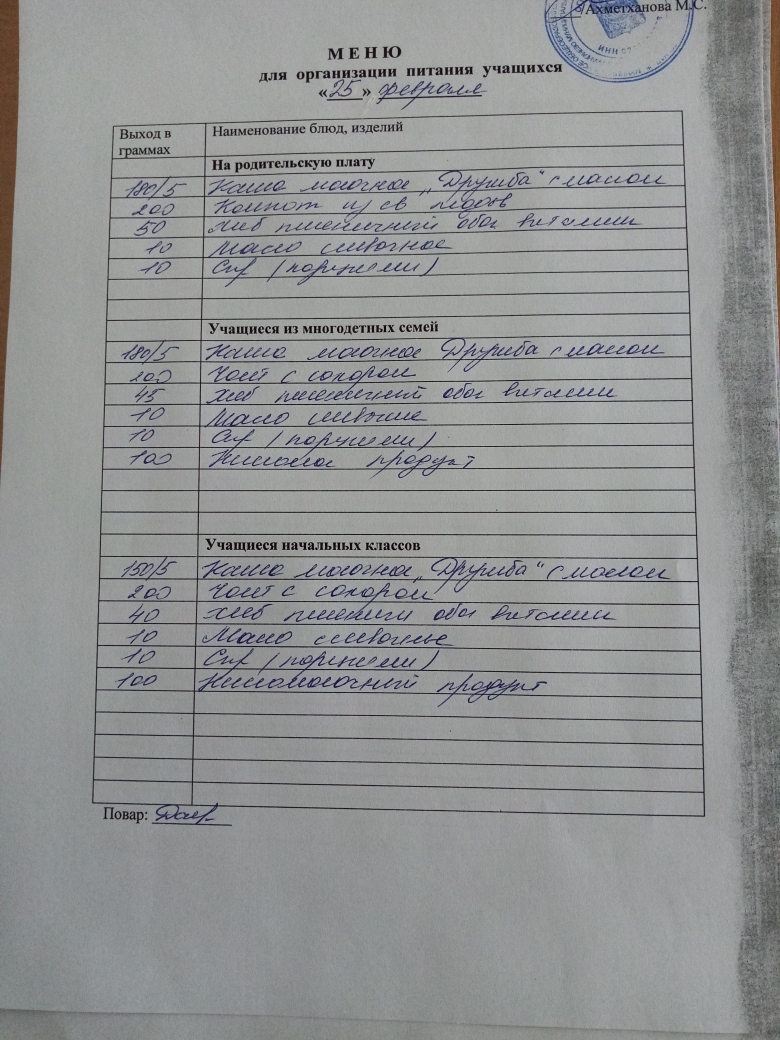 Ахметханова М.С.
ИНН
М Е Н Ю
для организации питания учащихся
«25» февраля
Выход в граммах Наименование блюд, изделий
На родительскую плату
180/5 Каша молочная „Дружба" с маслом
200 Компот из св плодов
50 Хлеб пшеничный обог витамин
10 Масло сливочное
10 Сыр (порциями)
Учащиеся из многодетных семей
180/5 Каша молочная Дружба с маслом
200 Чай с сахаром
45 Хлеб пшеничный обог витамин
10 Масло сливочное
10 Сыр (порциями)
100 Кисломол продукт
Учащиеся начальных классов
150/5 Каша молочная „Дружба" с маслом
200 Чай с сахаром
40 Хлеб пшенич обог витамин
10 Масло сливочное
10 Сыр (порциями)
100 Кисломолочный продукт
Повар: